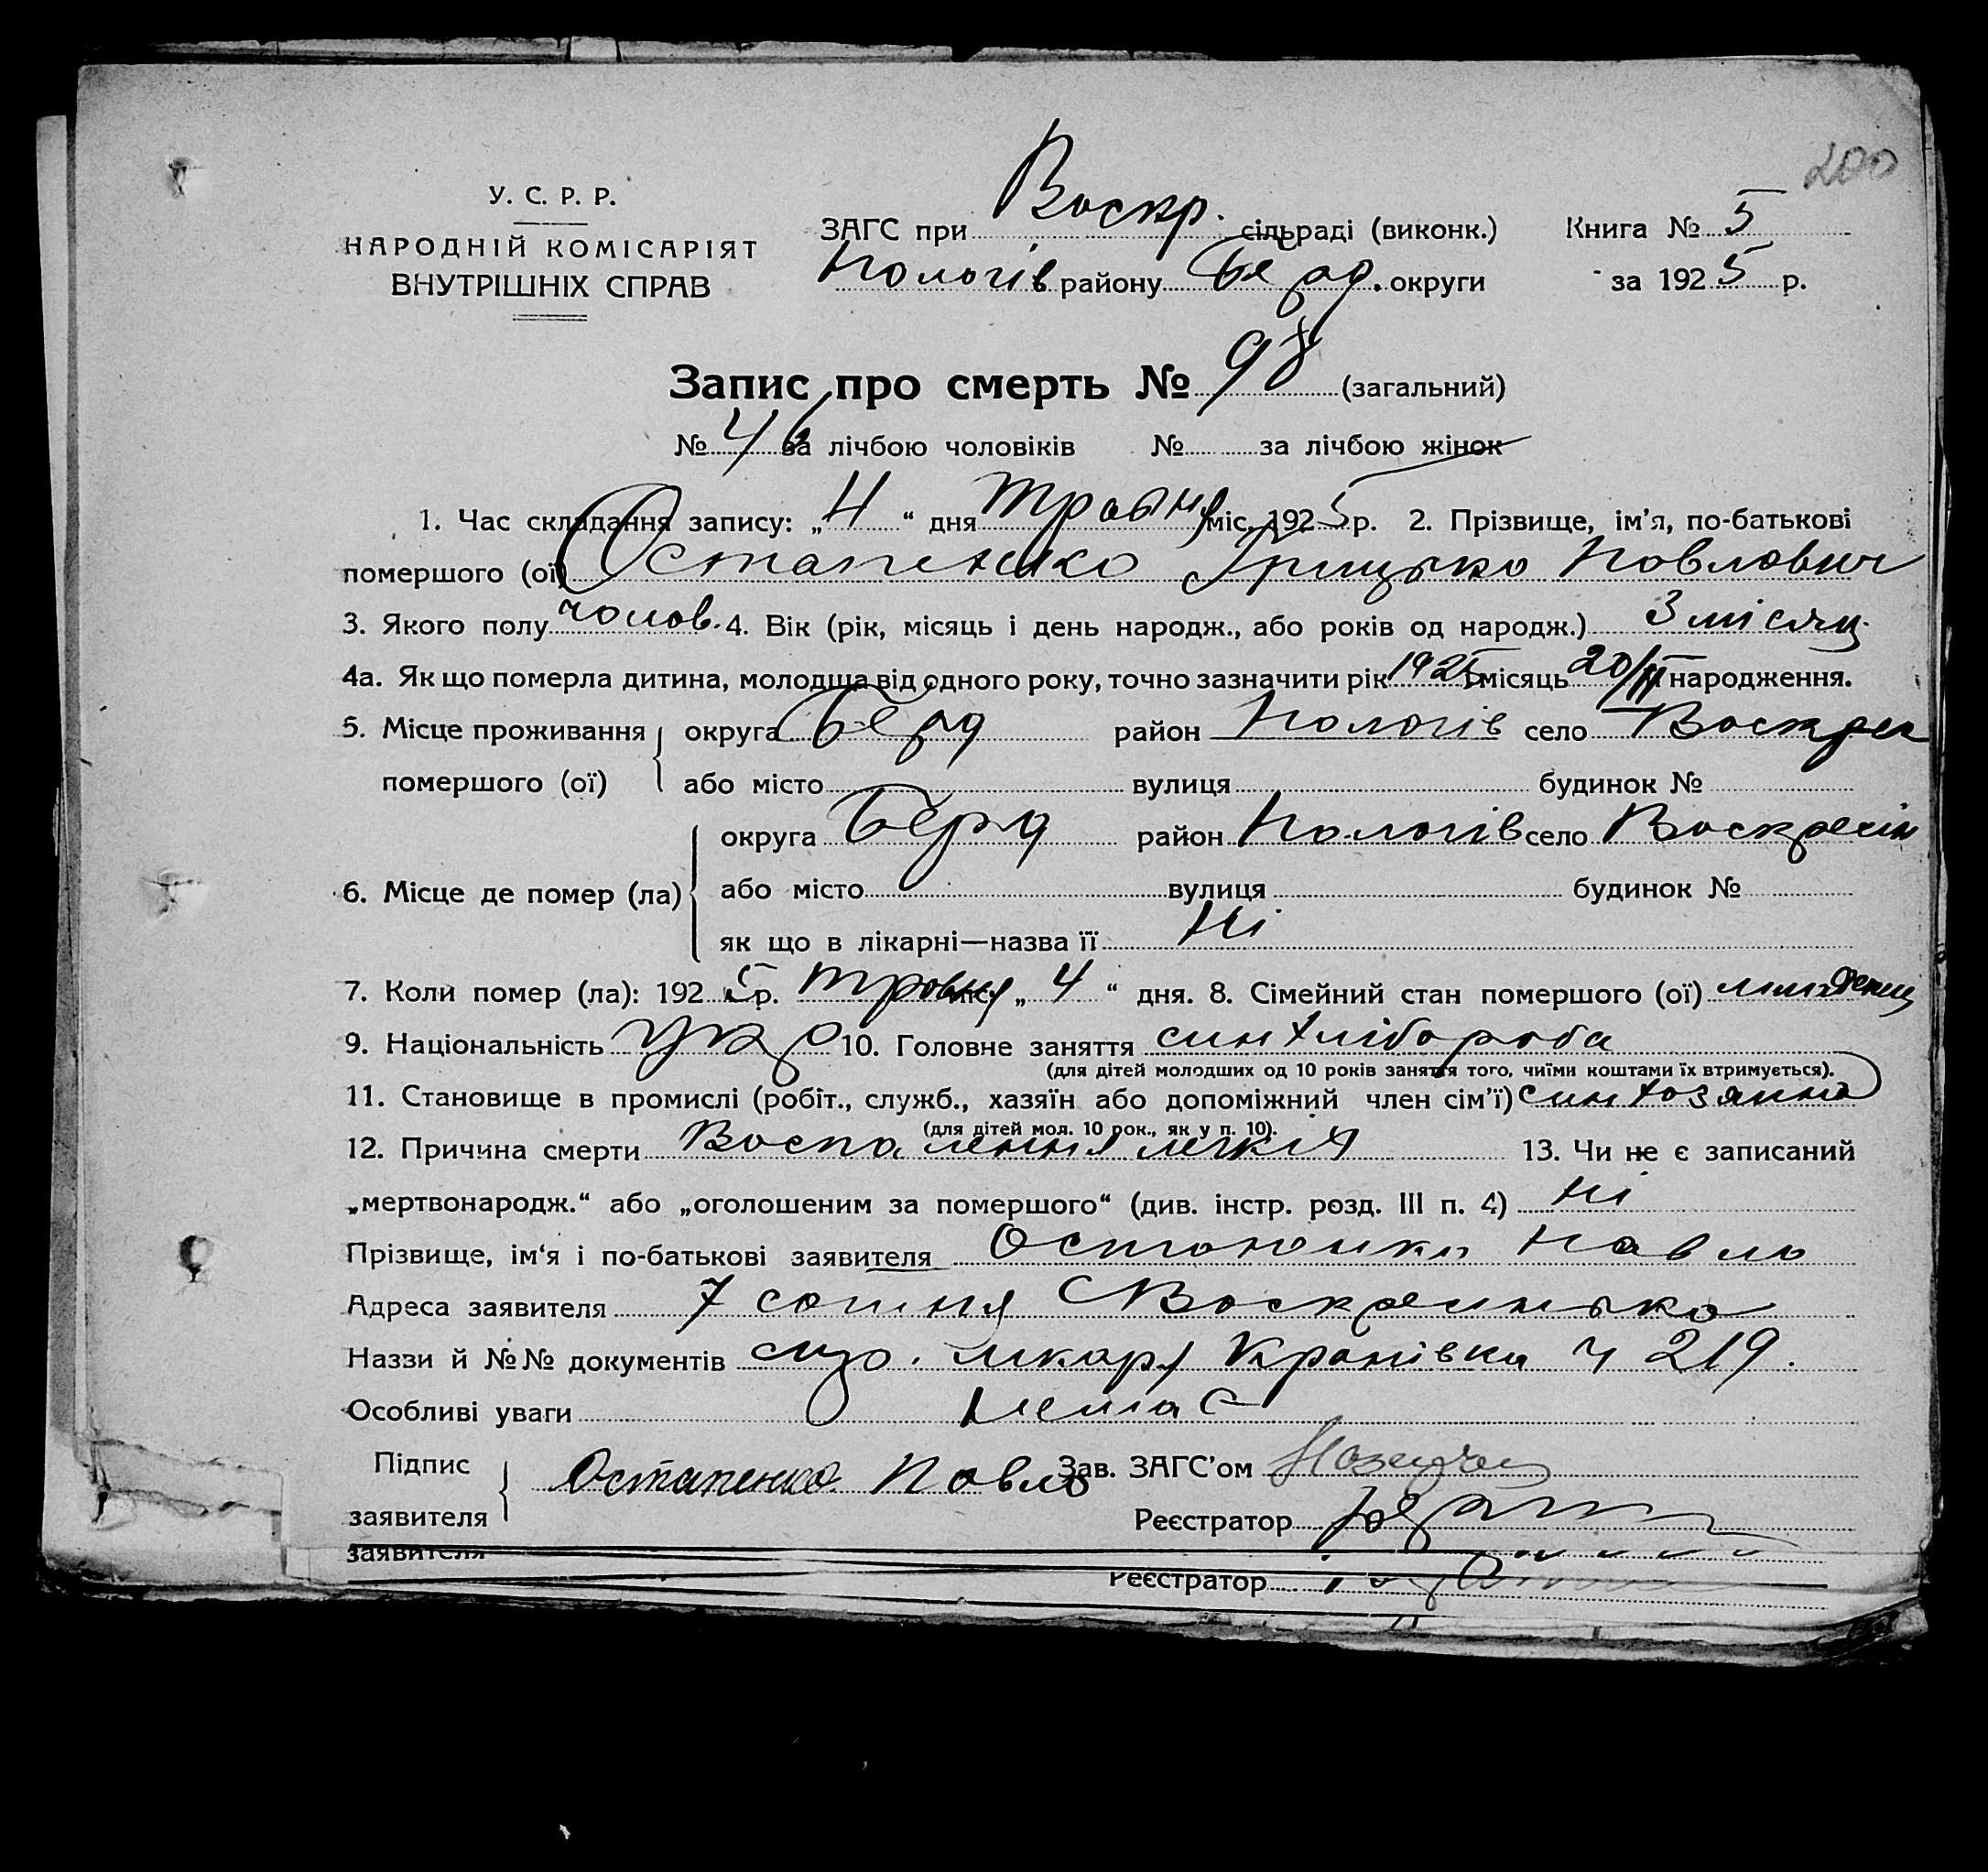 200
У. С. Р. Р.
НАРОДНІЙ КОМІСАРІЯТ
ВНУТРІШНІХ СПРАВ
ЗАГС при Воскр. сільраді (виконк.) Книга № 5
Пологів району Берд. округи за 1925 р.
Запис про смерть № 98 (загальний)
№ 46 за лічбою чоловіків № за лічбою жінок
1. Час складання запису: „4“ дня травня міс. 1925 р. 2. Прізвище, ім’я, по-батькові
помершого (ої) Остапенко Грицько Павлович
3. Якого полу чолов. 4. Вік (рік, місяць і день народж., або років од народж.) 3 місяц.
4а. Як що померла дитина, молодша від одного року, точно зазначити рік 1925 і місяць 20/II народження.
5. Місце проживання округа Берд район Пологів село Воскрес
помершого (ої) або місто вулиця будинок №
округа Берд район Пологів село
6. Місце де помер (ла) або місто вулиця будинок №
як що в лікарні—назва її Ні
7. Коли помер (ла): 1925 р. травня міс. „4“ дня. 8. Сімейний стан помершого (ої)
9. Національність укр 10. Головне заняття син хлібороба
(для дітей молодших од 10 років заняття того, чиїми коштами їх втримується).
11. Становище в промислі (робіт., служб., хазяїн або допоміжний член сім’ї) син хозяина
(для дітей мол. 10 рок., як у п. 10).
12. Причина смерти Воспаления легкия 13. Чи не є записаний
„мертвонародж.“ або „оголошеним за помершого“ (див. інстр. розд. III п. 4) ні
Прізвище, ім‘я і по-батькові заявителя Остапенко Павло
Адреса заявителя 7 сотня
Назви й №№ документів лікаря ч 219.
Особливі уваги немає
Підпис
заявителя Остапенко Павло Зав. ЗАГС’ом
Реєстратор
заявителя
Реєстратор